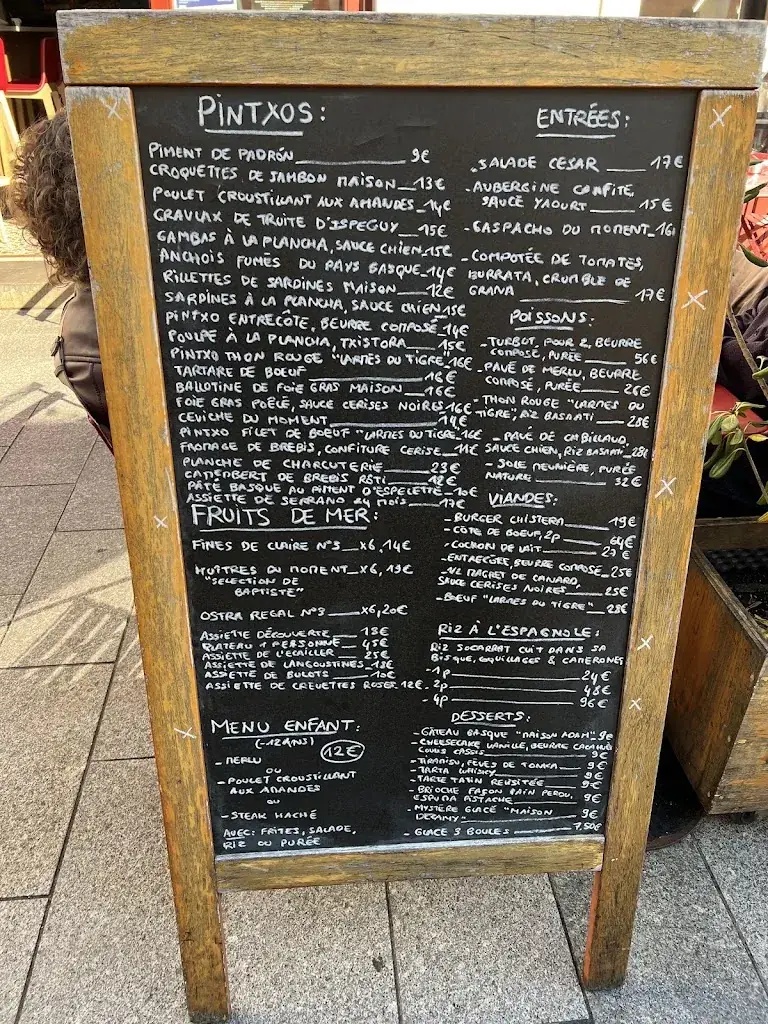 PINTXOS:
PIMENT DE PADRÓN 9€
CROQUETTES DE JAMBON MAISON 13€
POULET CROUSTILLANT AUX AMANDES 14€
GRAVLAX DE TRUITE D'ISPEGUY 15€
GAMBAS À LA PLANCHA, SAUCE CHIEN 15€
ANCHOIS FUMÉS DU PAYS BASQUE 14€
RILLETTES DE SARDINES MAISON 12€
SARDINES À LA PLANCHA, SAUCE CHIEN 15€
PINTXO ENTRECÔTE, BEURRE COMPOSÉ 14€
POULPE À LA PLANCHA, TXISTORA 15€
PINTXO THON ROUGE "LARMES DU TIGRE" 16€
TARTARE DE BOEUF 16€
BALLOTINE DE FOIE GRAS MAISON 16€
FOIE GRAS POÊLÉ, SAUCE CERISES NOIRES 16€
CEVICHE DU MOMENT 14€
PINTXO FILET DE BOEUF "LARMES DU TIGRE 16€
FROMAGE DE BREBIS, CONFITURE CERISE 11€
PLANCHE DE CHARCUTERIE 23€
CAMEMBERT DE BREBIS RÔTI 18€
PÂTÉ BASQUE AU PIMENT D'ESPELETTE 10€
ASSIETTE DE SERRANO 24 MOIS 17€
FRUITS DE MER:
FINES DE CLAIRE N°3 x6, 14€
HUÎTRES DU MOMENT x6, 19€
"SELECTION DE
BAPTISTE"
OSTRA REGAL N°3 x6, 20€
ASSIETTE DÉCOUVERTE 18€
PLATEAU 1 PERSONNE 45€
ASSIETTE DE L'ÉCAILLER 25€
ASSIETTE DE LANGOUSTINES 18€
ASSIETTE DE BULOTS 10€
ASSIETTE DE CREVETTES ROSES 12€
MENU ENFANT:
(-12 ANS) 12€
- MERLU
OU
- POULET CROUSTILLANT
AUX AMANDES
OU
- STEAK HACHÉ
AVEC: FRITES, SALADE,
RIZ OU PURÉE
ENTRÉES:
- SALADE CESAR 17€
- AUBERGINE CONFITE,
SAUCE YAOURT 15€
- GASPACHO DU MOMENT 16€
- COMPOTÉE DE TOMATES,
BURRATA, CRUMBLE DE
GRANA 17€
POISSONS:
- TURBOT, POUR 2, BEURRE
COMPOSÉ, PURÉE 56€
- PAVÉ DE MERLU, BEURRE
COMPOSÉ, PURÉE 26€
- THON ROUGE "LARMES DU
TIGRE", RIZ BASMATI 28€
- PAVÉ DE CABILLAUD,
SAUCE CHIEN, RIZ BASMATI 28€
- SOLE MEUNIÈRE, PURÉE
NATURE 32€
VIANDES:
- BURGER CHISTERA 19€
- CÔTE DE BOEUF, 2p 64€
- COCHON DE LAIT 27€
- ENTRECÔTE, BEURRE COMPOSÉ 25€
- 1/2 MAGRET DE CANARD,
SAUCE CERISES NOIRES 25€
- BOEUF "LARMES DU TIGRE" 28€
RIZ À L'ESPAGNOLE:
RIZ SOCARRAT CUIT DANS SA
BISQUE, COQUILLAGES & CAMERONES
- 1p 24€
- 2p 48€
- 4p 96€
DESSERTS:
- GÂTEAU BASQUE "MAISON ADAM" 9€
- CHEESECAKE VANILLE, BEURRE CACAHUÈTE
COULIS CASSIS 9€
- TIRAMISU, FÈVES DE TONKA 9€
- TARTA WHISKY 9€
- TARTE TATIN REVISITÉE 9€
- BRIOCHE FAÇON PAIN PERDU,
ESPUMA PISTACHE 9€
- MYSTÈRE GLACÉ "MAISON
DEZAMY" 9€
- GLACE 3 BOULES 7,50€